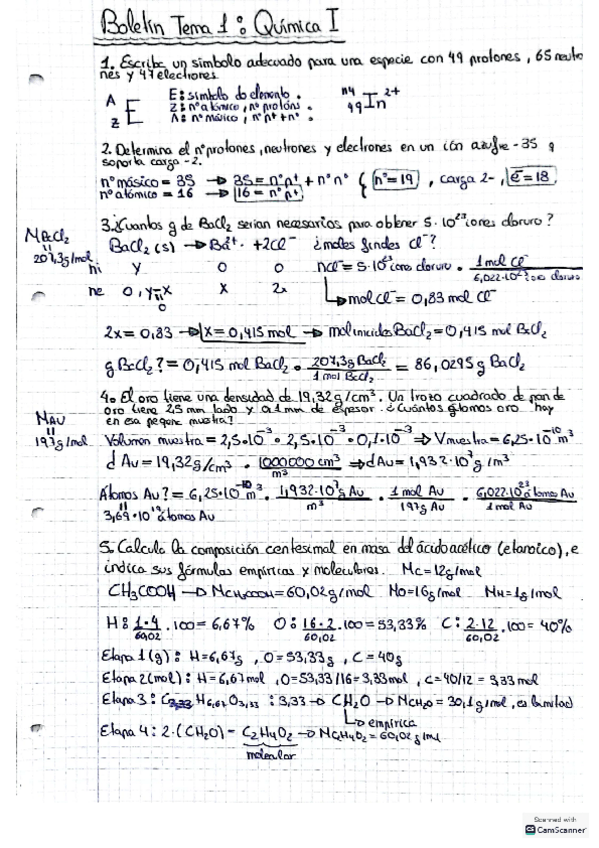 Boletín Tema 1: Química I
1. Escribe un símbolo adecuado para una especie con 49 protones, 65 neutro
nes y 47 electrones
A
Z E
E: símbolo do elemento.
Z: nº atómico, nº protóns.
A: nº másico, nº p⁺ + nº n°.
¹¹⁴₄₉In²⁺
2. Determina el nº protones, neutrones y electrones en un ión azufre-35 q
soporta carga -2.
nº másico = 35 → 35 = nº p⁺ + nº n°
nº atómico = 16 → 16 = nº p⁺
n° = 19, carga 2-, e⁻ = 18
3. ¿Cuantos g de BaCl₂ serian necesarios para obtener 5·10²³ iones cloruro?
M BaCl₂
"
207,3g/mol
BaCl₂ (s) → Ba²⁺ + 2Cl⁻ ¿moles Cl⁻?
ni y 0 0 nCl⁻ = 5·10²³ iones cloruro · 1 mol Cl⁻ / 6,022·10²³ iones cloruro
ne 0, y-x x 2x
"
0
→ mol Cl⁻ = 0,83 mol Cl⁻
2x = 0,83 → x = 0,415 mol → mol iniciales BaCl₂ = 0,415 mol BaCl₂
g BaCl₂? = 0,415 mol BaCl₂ · 207,3g BaCl₂ / 1 mol BaCl₂ = 86,0295 g BaCl₂
4. El oro tiene una densidad de 19,32 g/cm³. Un trozo cuadrado de pan de
oro tiene 2,5 mm lado y 0.1 mm de espesor. ¿Cuántos átomos oro hay
en esa peque muestra?
M Au
"
197g/mol
Volumen muestra = 2,5·10⁻³ · 2,5·10⁻³ · 0,1·10⁻³ ⇒ V muestra = 6,25·10⁻¹⁰ m³
d Au = 19,32 g/cm³ · 1000000 cm³ / m³ ⇒ d Au = 1,932·10⁷ g/m³
Átomos Au? = 6,25·10⁻¹⁰ m³ · 1,932·10⁷ g Au / m³ · 1 mol Au / 197g Au · 6,022·10²³ átomos Au / 1 mol Au
"
3,69·10¹⁹ átomos Au
5. Calcula la composición centesimal en masa del ácido acético (etanoico), e
indica sus fórmulas empíricas y moleculares. Mc = 12g/mol
CH₃COOH → M CH₃COOH = 60,02g/mol Mo = 16g/mol MH = 1g/mol
H: 1·4 / 60,02 · 100 = 6,67% O: 16·2 / 60,02 · 100 = 53,33% C: 2·12 / 60,02 · 100 = 40%
Etapa 1 (g): H = 6,67g, O = 53,33g, C = 40g
Etapa 2 (mol): H = 6,67 mol, O = 53,33/16 = 3,33 mol, C = 40/12 = 3,33 mol
Etapa 3: C₃,₃₃ H₆,₆₇ O₃,₃₃ : 3,33 → CH₂O → M CH₂O = 30,1g/mol, es la mitad
→ empírica
Etapa 4: 2·(CH₂O) = C₂H₄O₂ → M C₂H₄O₂ = 60,02 g/mol
molecular
Scanned with
CS CamScanner